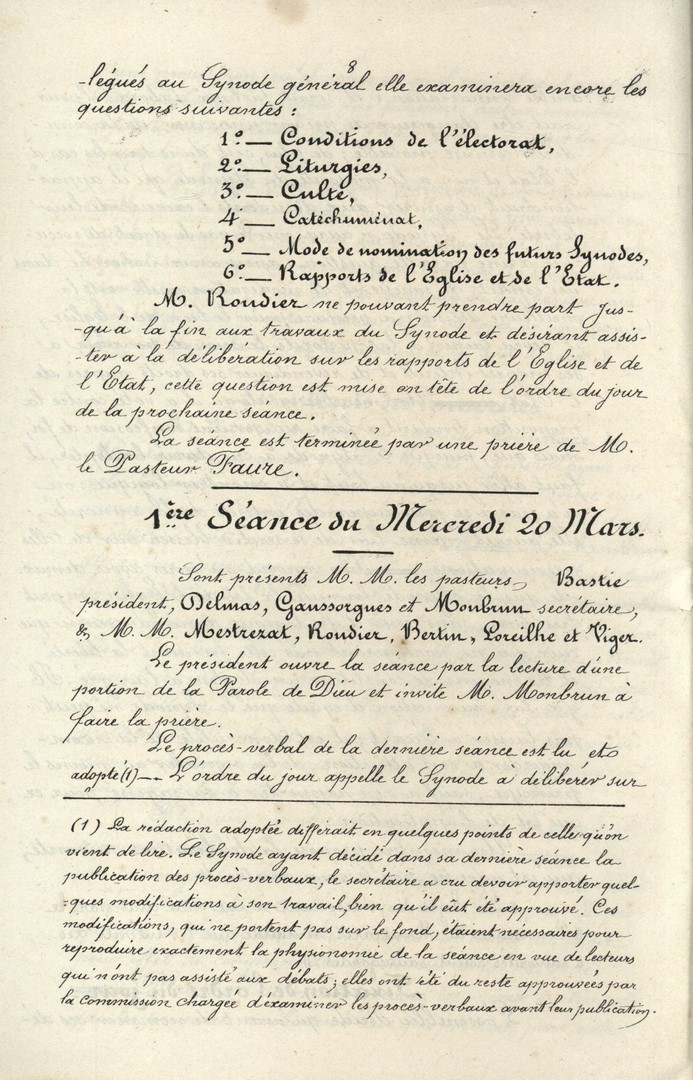 8
-légués au Synode général elle examinera encore les
questions suivantes :
1º — Conditions de l'électorat,
2º — Liturgies,
3º — Culte,
4 — Catéchuménat,
5º — Mode de nomination des futurs Synodes,
6º — Rapports de l'Église et de l'État.
M. Roudier ne pouvant prendre part jus-
-qu'à la fin aux travaux du Synode et désirant assis-
-ter à la délibération sur les rapports de l'Église et de
l'État, cette question est mise en tête de l'ordre du jour
de la prochaine séance.
La séance est terminée par une prière de M.
le Pasteur Faure.
1ère Séance du Mercredi 20 Mars.
Sont présents M. M. les pasteurs, Bastie
président, Delmas, Gaussorgues et Monbrun secrétaire,
& M. M. Mestrezat, Roudier, Bertin, Poreilhe et Viger.
Le président ouvre la séance par la lecture d'une
portion de la Parole de Dieu et invite M. Monbrun à
faire la prière.
Le procès-verbal de la dernière séance est lu et
adopté (1) — L'ordre du jour appelle le Synode à délibérer sur
(1) La rédaction adoptée différait en quelques points de celle qu'on
vient de lire. Le Synode ayant décidé dans sa dernière séance la
publication des procès-verbaux, le secrétaire a cru devoir apporter quel-
-ques modifications à son travail, bien qu'il eût été approuvé. Ces
modifications, qui ne portent pas sur le fond, étaient nécessaires pour
reproduire exactement la physionomie de la séance en vue de lecteurs
qui n'ont pas assisté aux débats ; elles ont été du reste approuvées par
la commission chargée d'examiner les procès-verbaux avant leur publication.